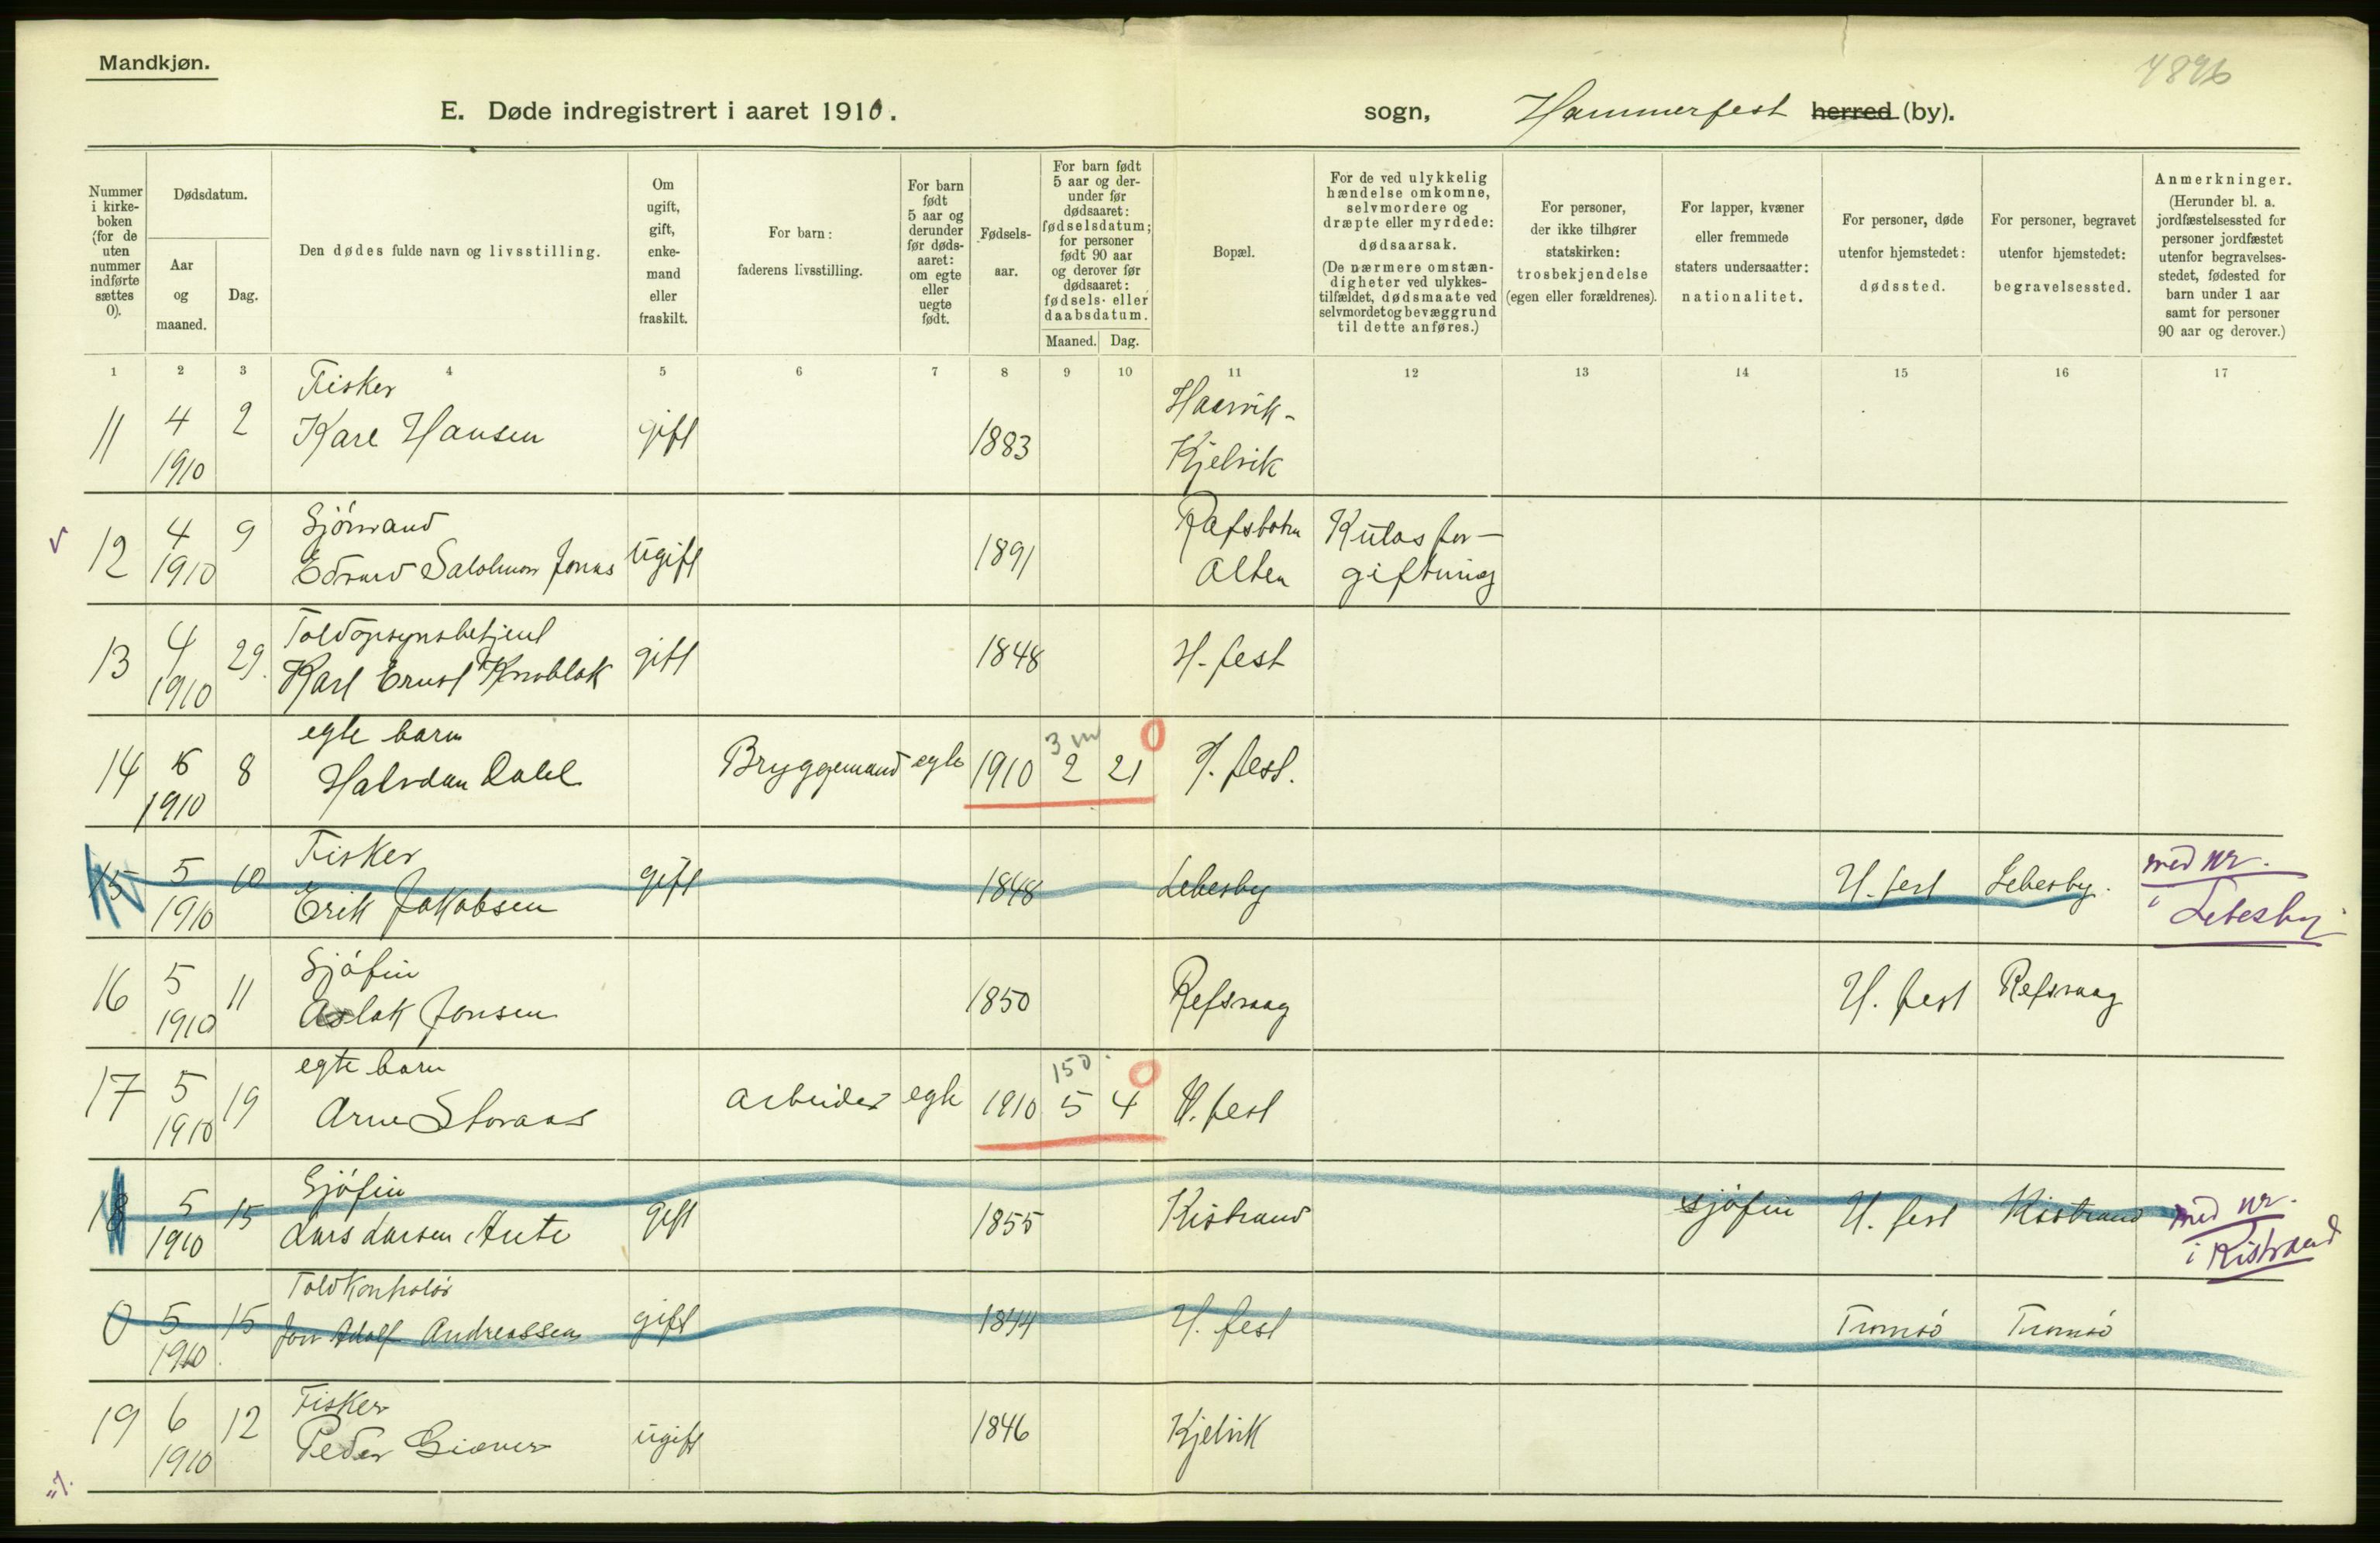 Mandkjøn.
4896
E. Døde indregistrert i aaret 1910.
sogn, Hammerfest herred (by).
Nummer i kirke-boken (for de uten nummer indførte sættes 0).
Dødsdatum.
Aar og maaned.
Dag.
Den dødes fulde navn og livsstilling.
Om ugift, gift, enke-mand eller fraskilt.
For barn: faderens livsstilling.
For barn født 5 aar og derunder før døds-aaret: om egte eller uegte født.
Fødsels-aar.
For barn født 5 aar og der-under før dødsaaret: fødselsdatum; for personer født 90 aar og derover før dødsaaret: fødsels- eller daabsdatum.
Maaned. Dag.
Bopæl.
For de ved ulykkelig hændelse omkomne, selvmordere og dræpte eller myrdede: dødsaarsak. (De nærmere omstæn-digheter ved ulykkes-tilfældet, dødsmaate ved selvmordet og bevæggrund til dette anføres.)
For personer, der ikke tilhører statskirken: trosbekjendelse (egen eller forældrenes).
For lapper, kvæner eller fremmede staters undersaatter: nationalitet.
For personer, døde utenfor hjemstedet: dødssted.
For personer, begravet utenfor hjemstedet: begravelsessted.
Anmerkninger. (Herunder bl. a. jordfæstelsessted for personer jordfæstet utenfor begravelses-stedet, fødested for barn under 1 aar samt for personer 90 aar og derover.)
1 2 3 4 5 6 7 8 9 10 11 12 13 14 15 16 17
Fisker
11 4 1910 2 Karl Hansen gift 1883 Kjelvik
Sjømand
12 4 1910 9 Edvard Salomon Jonas ugift 1891 Rafsbotn Alten Kulosfor-giftning
Toldopsynsbetjent
13 4 1910 29. Karl Ernst Knoblok gift 1848 H-fest
egte barn
14 5 1910 8 Halvdan Dahl Bryggemand egte 1910 3 m 2 21 0 H. fest.
Fisker
15 5 1910 10 Erik Jakobsen gift 1848 Lebesby H. fest Lebesby. med nr. i Lebesby
Sjøfin
16 5 1910 11 Aslak Jonsen 1850 Refsvaag H. fest Refsvaag
egte barn
17 5 1910 19 Arne Storaas arbeider egte 1910 15 D 5 4 0 H. fest
Sjøfin
18 5 1910 15 Lars Larsen Aute gift 1855 Kistrand sjøfin H. fest Kistrand med nr. i Kistrand
Toldkontrolør
0 5 1910 15 Jon Adolf Andreassen gift 1844 H. fest Tromsø Tromsø
Fisker
19 6 1910 12 Peder Giæver ugift 1846 Kjelvik